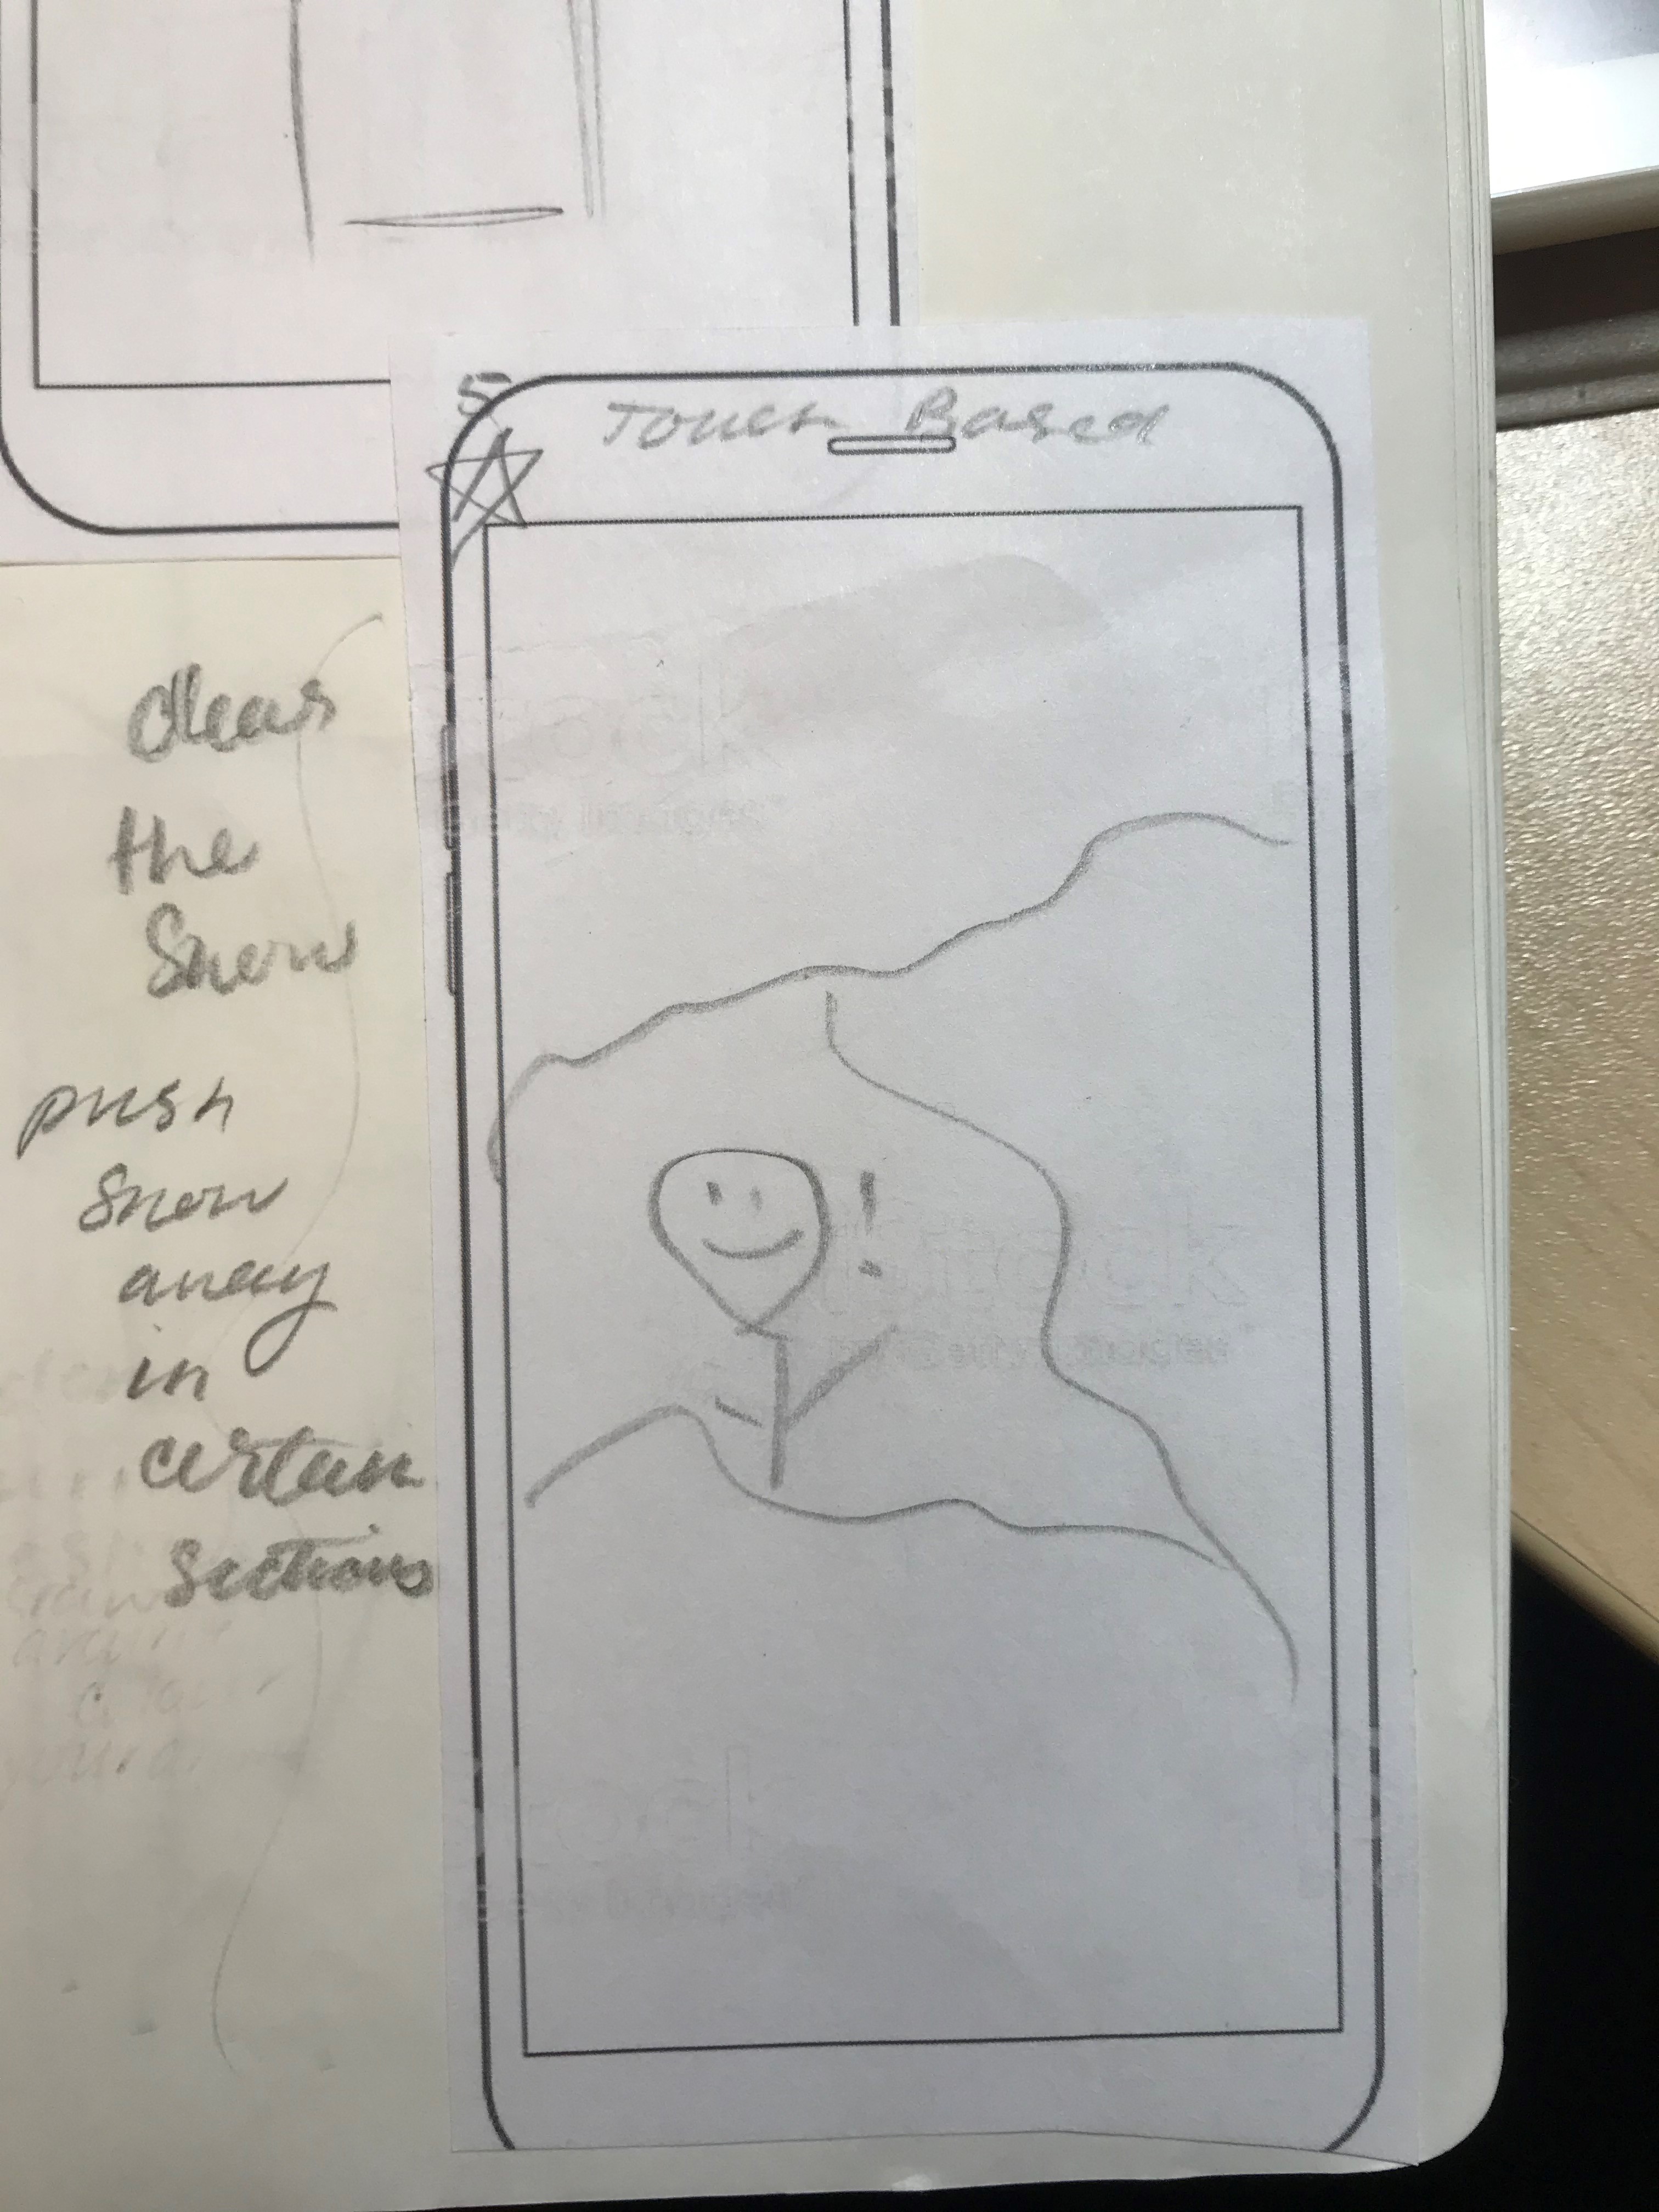 5
Touch Based
clear
the
Snow
push
snow
away
in
certain
sections